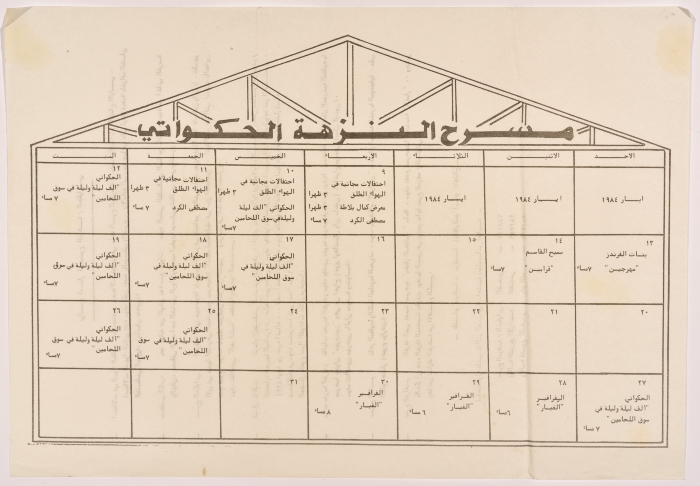 مسرح النزهة الحكواتي
الاحد
الاثنين
الثلاثاء
الاربعاء
الخميس
الجمعة
السبت
ايار ١٩٨٤
ايار ١٩٨٤
ايار ١٩٨٤
٩
احتفالات مجانية في
الهواء الطلق ٣ ظهرا
معرض كمال بلاطة ٣ ظهرا
مصطفى الكرد ٧ مساء
١٠
احتفالات مجانية في
الهواء الطلق ٣ ظهرا
الحكواتي "الف ليلة
وليلة في سوق اللحامين"
٧مساء
١١
احتفالات مجانية في
الهواء الطلق ٣ ظهرا
مصطفى الكرد ٧ مساء
١٢
الحكواتي
"الف ليلة وليلة في سوق
اللحامين" ٧ مساء
١٣
بنات الفرندز
"مهرجيين" ٧مساء
١٤
سميح القاسم
"قرابين" ٧مساء
١٥
١٦
١٧
الحكواتي
"الف ليلة وليلة في
سوق اللحامين"
٧مساء
١٨
الحكواتي
"الف ليلة وليلة في سوق
اللحامين"
٧مساء
١٩
الحكواتي
"الف ليلة وليلة في سوق
اللحامين"
٧مساء
٢٠
٢١
٢٢
٢٣
٢٤
٢٥
الحكواتي
"الف ليلة وليلة في سوق
اللحامين"
٧مساء
٢٦
الحكواتي
"الف ليلة وليلة في سوق
اللحامين"
٧مساء
٢٧
الحكواتي
"الف ليلة وليلة في
سوق اللحامين"
٧ مساء
٢٨
الفرافير
"الغبار" ٦مساء
٢٩
الفرافير
"الغبار" ٦ مساء
٣٠
الفرافير
"الغبار" ٨ مساء
٣١